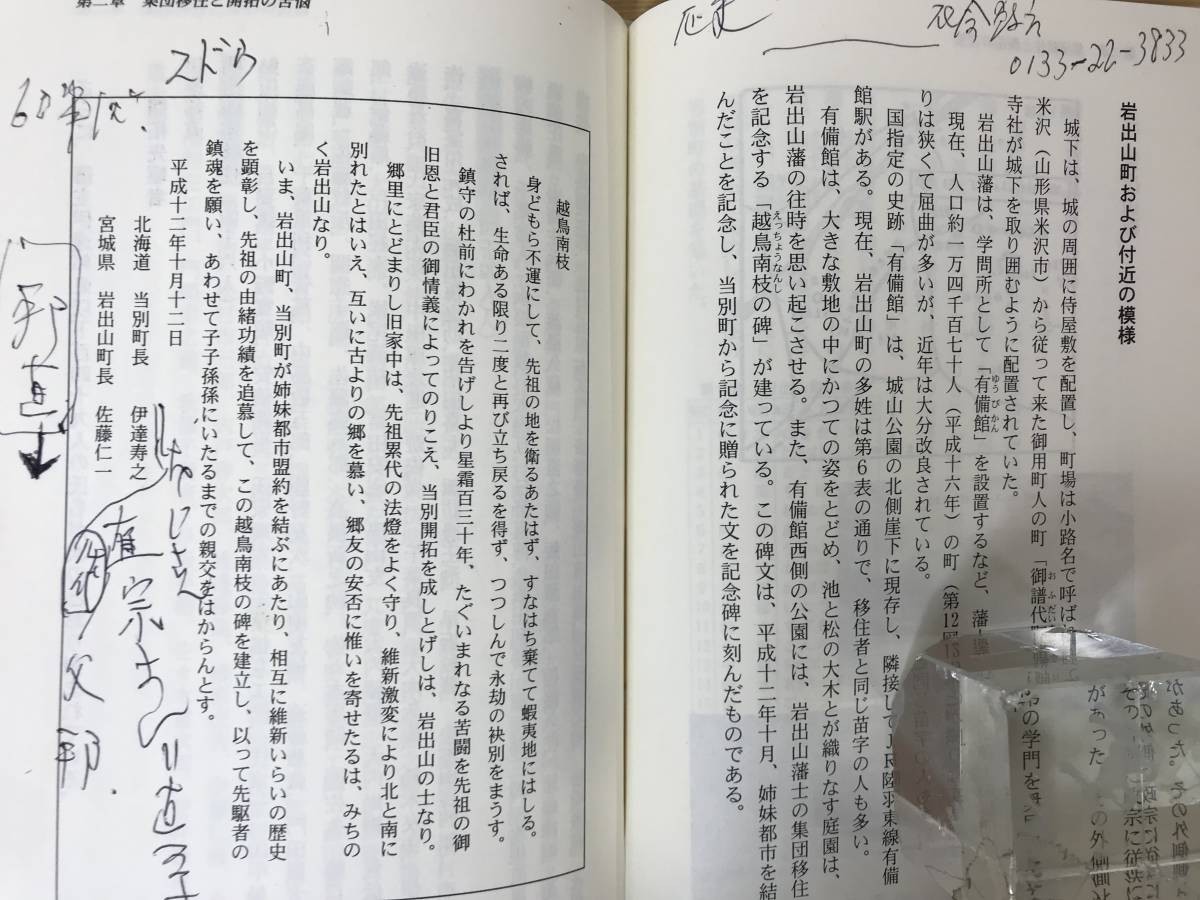 岩出山町および付近の模様
城下は、城の周囲に侍屋敷を配置し、町場は小路名で呼ば
米沢（山形県米沢市）から従って来た御用町人の町「御譜代
寺社が城下を取り囲むように配置されていた。
岩出山藩は、学問所として「有備館」を設置するなど、藩士
ゆうびかん
の学門を
現在、人口約一万四千百七十人（平成十六年）の町（第12
りは狭くて屈曲が多いが、近年は大分改良されている。
国指定の史跡「有備館」は、城山公園の北側崖下に現存し、隣接してＪＲ陸羽東線有備
館駅がある。現在、岩出山町の多姓は第６表の通りで、移住者と同じ苗字の人も多い。
有備館は、大きな敷地の中にかつての姿をとどめ、池と松の大木とが織りなす庭園は、
岩出山藩の往時を思い起こさせる。また、有備館西側の公園には、岩出山藩士の集団移住
を記念する「越鳥南枝の碑」が建っている。この碑文は、平成十二年十月、姉妹都市を結
えっちょうなんし
んだことを記念し、当別町から記念に贈られた文を記念碑に刻んだものである。
0133-22-3833
第二章　集団移住と開拓の苦悩
越鳥南枝
身どもら不運にして、先祖の地を衛るあたはず、すなはち棄てて蝦夷地にはしる。
されば、生命ある限り二度と再び立ち戻るを得ず、つつしんで永劫の袂別をまうす。
鎮守の杜前にわかれを告げしより星霜百三十年、たぐいまれなる苦闘を先祖の御
旧恩と君臣の御情義によってのりこえ、当別開拓を成しとげしは、岩出山の士なり。
郷里にとどまりし旧家中は、先祖累代の法燈をよく守り、維新激変により北と南に
別れたとはいえ、互いに古よりの郷を慕い、郷友の安否に惟いを寄せたるは、みちの
く岩出山なり。
いま、岩出山町、当別町が姉妹都市盟約を結ぶにあたり、相互に維新いらいの歴史
を顕彰し、先祖の由緒功績を追慕して、この越鳥南枝の碑を建立し、以って先駆者の
鎮魂を願い、あわせて子子孫孫にいたるまでの親交をはからんとす。
平成十二年十月十二日
北海道　当別町長　伊達寿之
宮城県　岩出山町長　佐藤仁一
スドウ
父